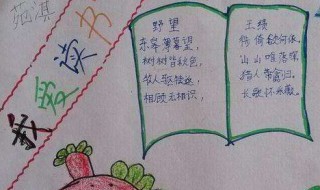 我爱读书
野望
东皋薄暮望，
树树皆秋色，
牧人驱犊返，
相顾无相识，
王绩
徙倚欲何依。
山山唯落晖。
猎人带禽归。
长歌怀采薇。